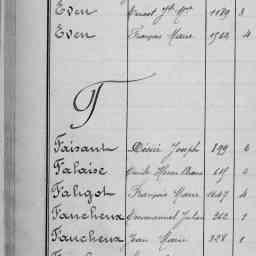 Even Ernest Jh Mie 1189 3
Even François Marie 1762 4
F
Faisant Désiré Joseph 199 6
Falaise Emile
Faligot François Marie 1647 4
Faucheux Emmanuel Julien 262 1
Faucheux Jean Marie 328 1